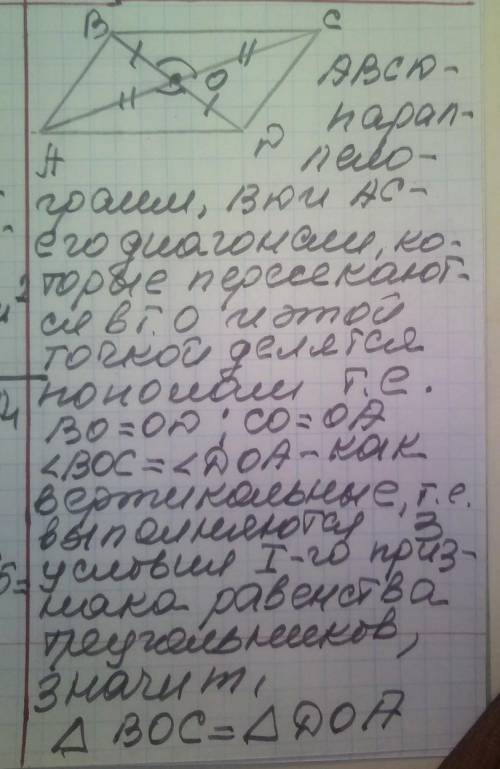 B C
O
A D
ABCD-
парал-
лело-
грамм, BD и AC-
его диагонали, ко-
торые пересекают-
ся в т. O и этой
точкой делятся
пополам т.е.
BO=OD; CO=OA
∠BOC=∠DOA-как
вертикальные, т.е.
выполняются 3
условия I-го приз-
нака равенства
треугольников,
значит,
△ BOC=△ DOA